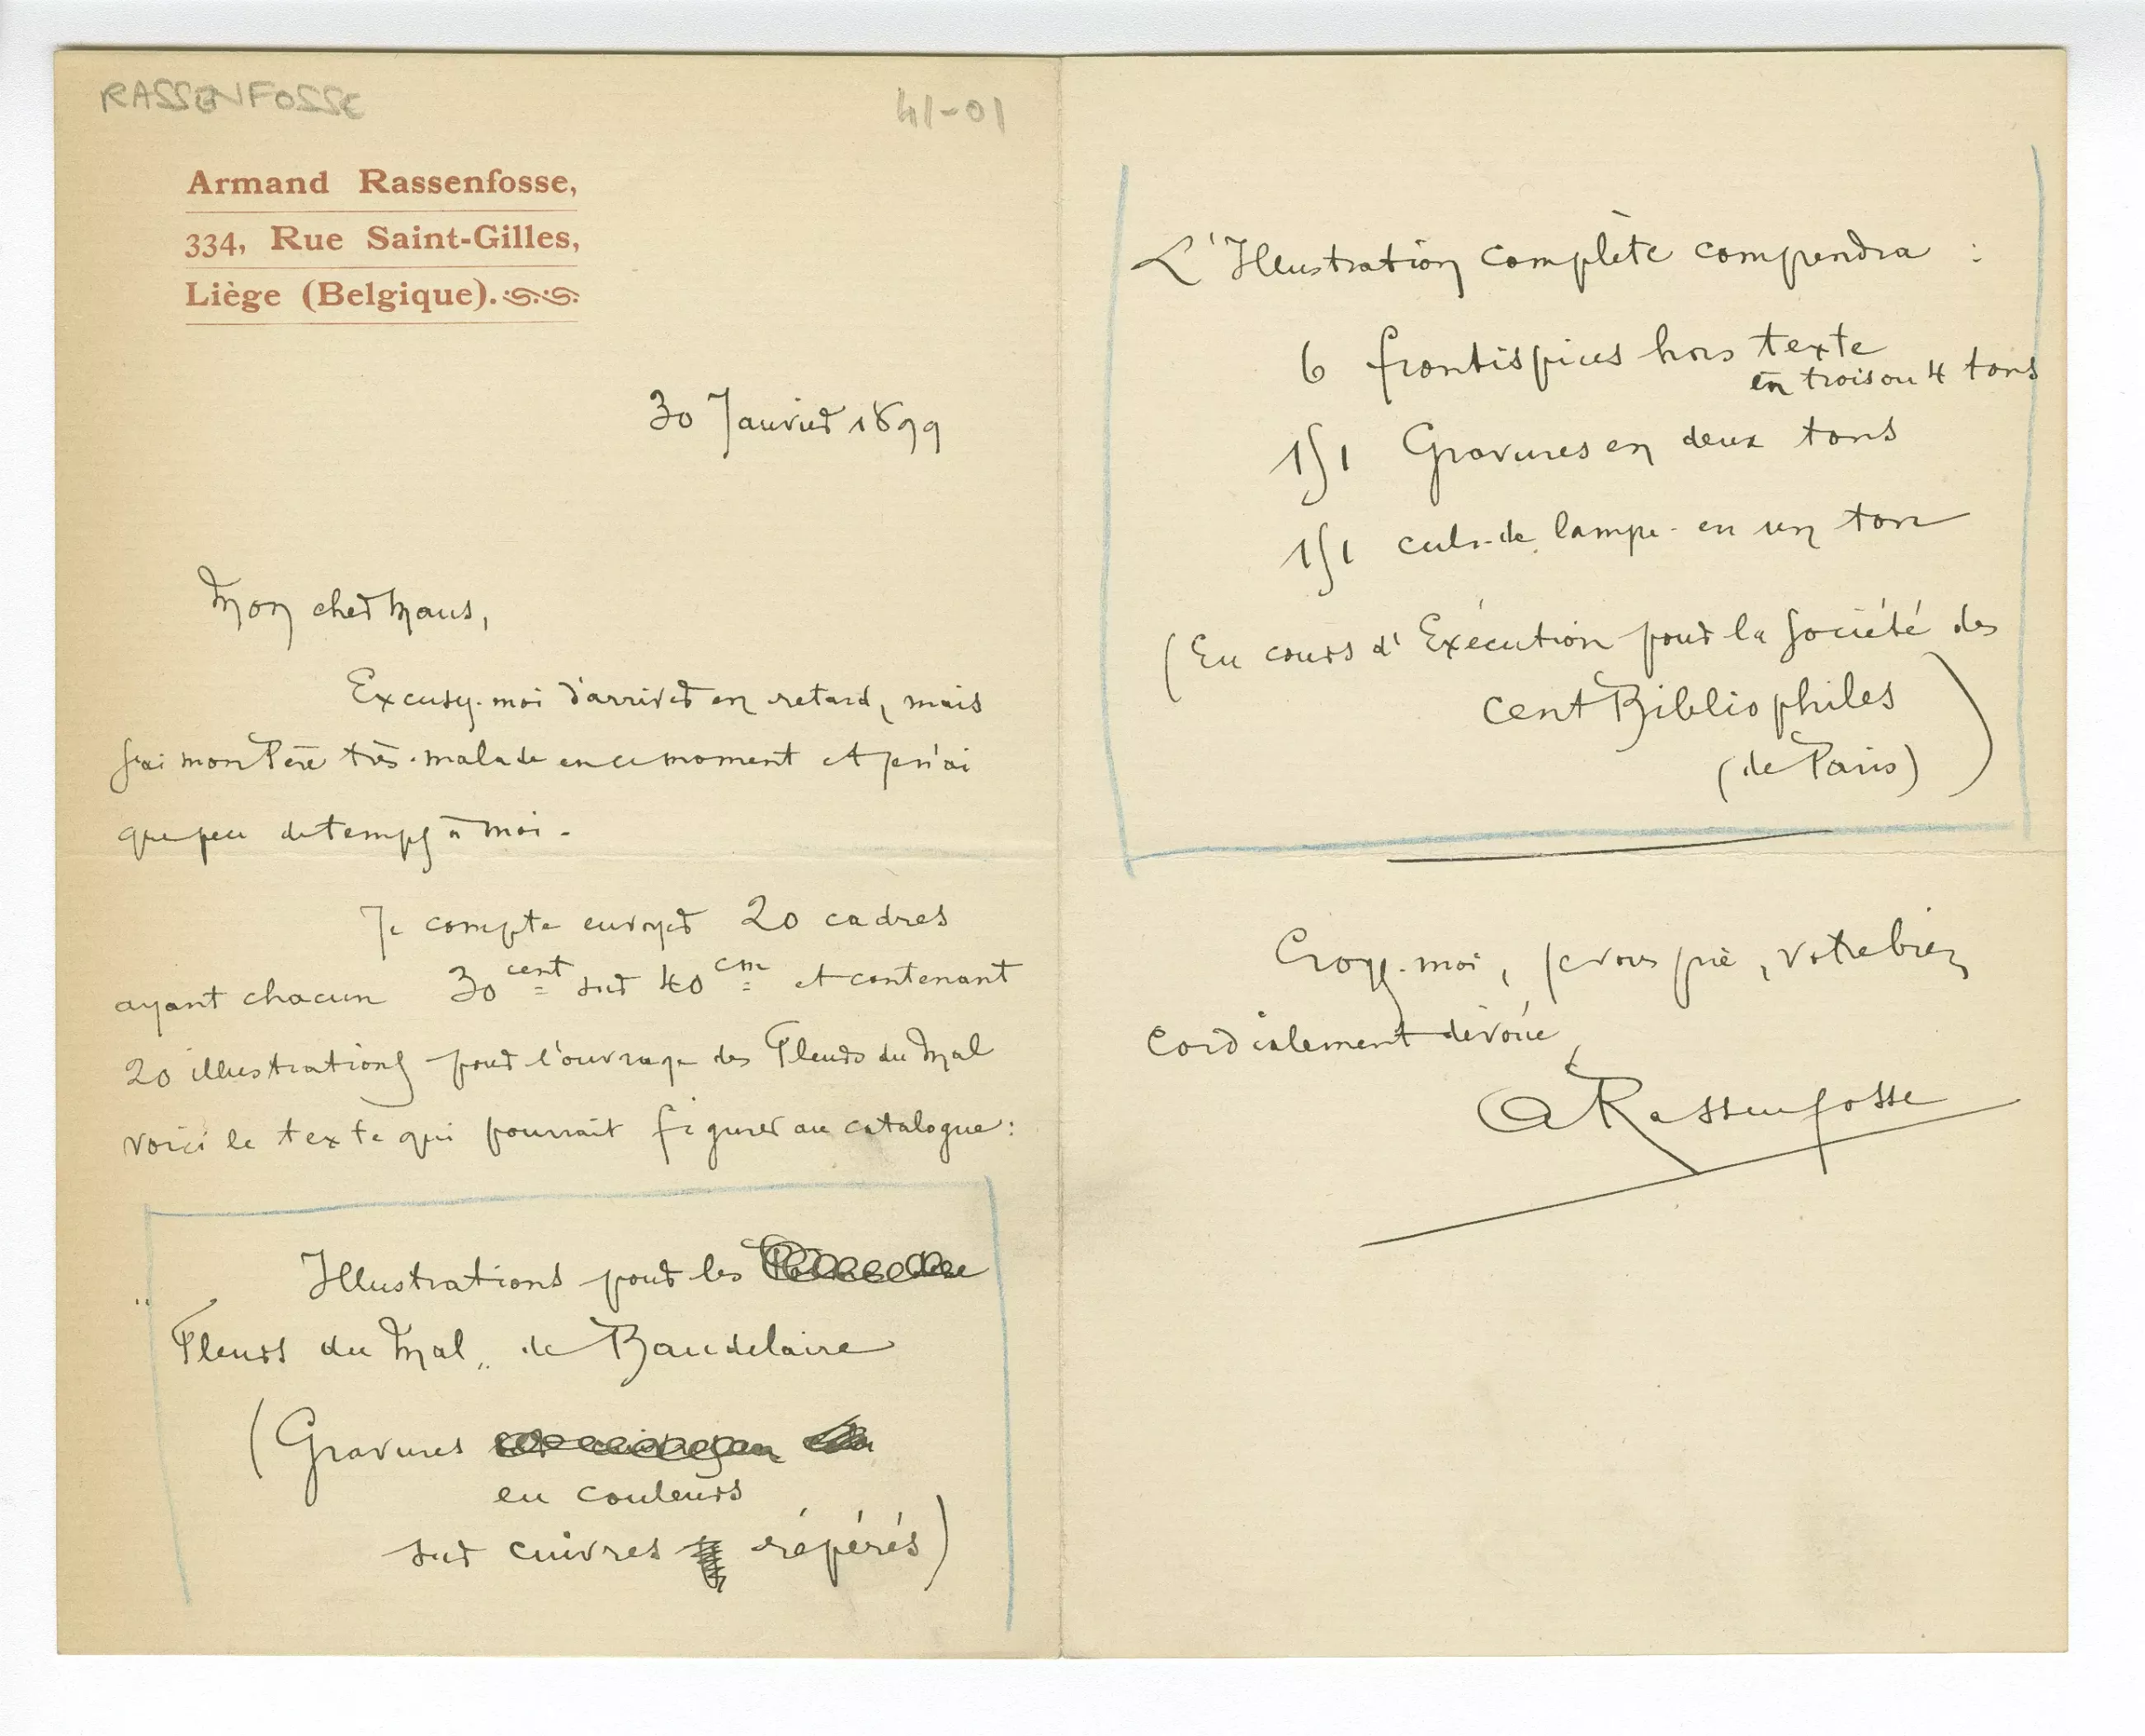 RASSENFOSSE
41-01
Armand Rassenfosse,
334, Rue Saint-Gilles,
Liège (Belgique).
30 Janvier 1899
Mon cher Maus,
Excusez-moi d'arriver en retard, mais
j'ai mon Père très-malade en ce moment et je n'ai
que peu de temps à moi.
Je compte envoyer 20 cadres
ayant chacun 30 cent sur 40 cm et contenant
20 illustrations pour l'ouvrage des Fleurs du Mal
voici le texte qui pourrait figurer au catalogue:
Illustrations pour les
"Fleurs du Mal" de Baudelaire
(Gravures
en couleurs
sur cuivres répérés)
L'Illustration complète comprendra :
6 frontispices hors texte
en trois ou 4 tons
151 Gravures en deux tons
151 culs-de lampe-en un ton
(En cours d'Exécution pour la Société des
cent Bibliophiles
(de Paris))
Croyez-moi, je vous prie, votre bien
cordialement dévoué
ARassenfosse